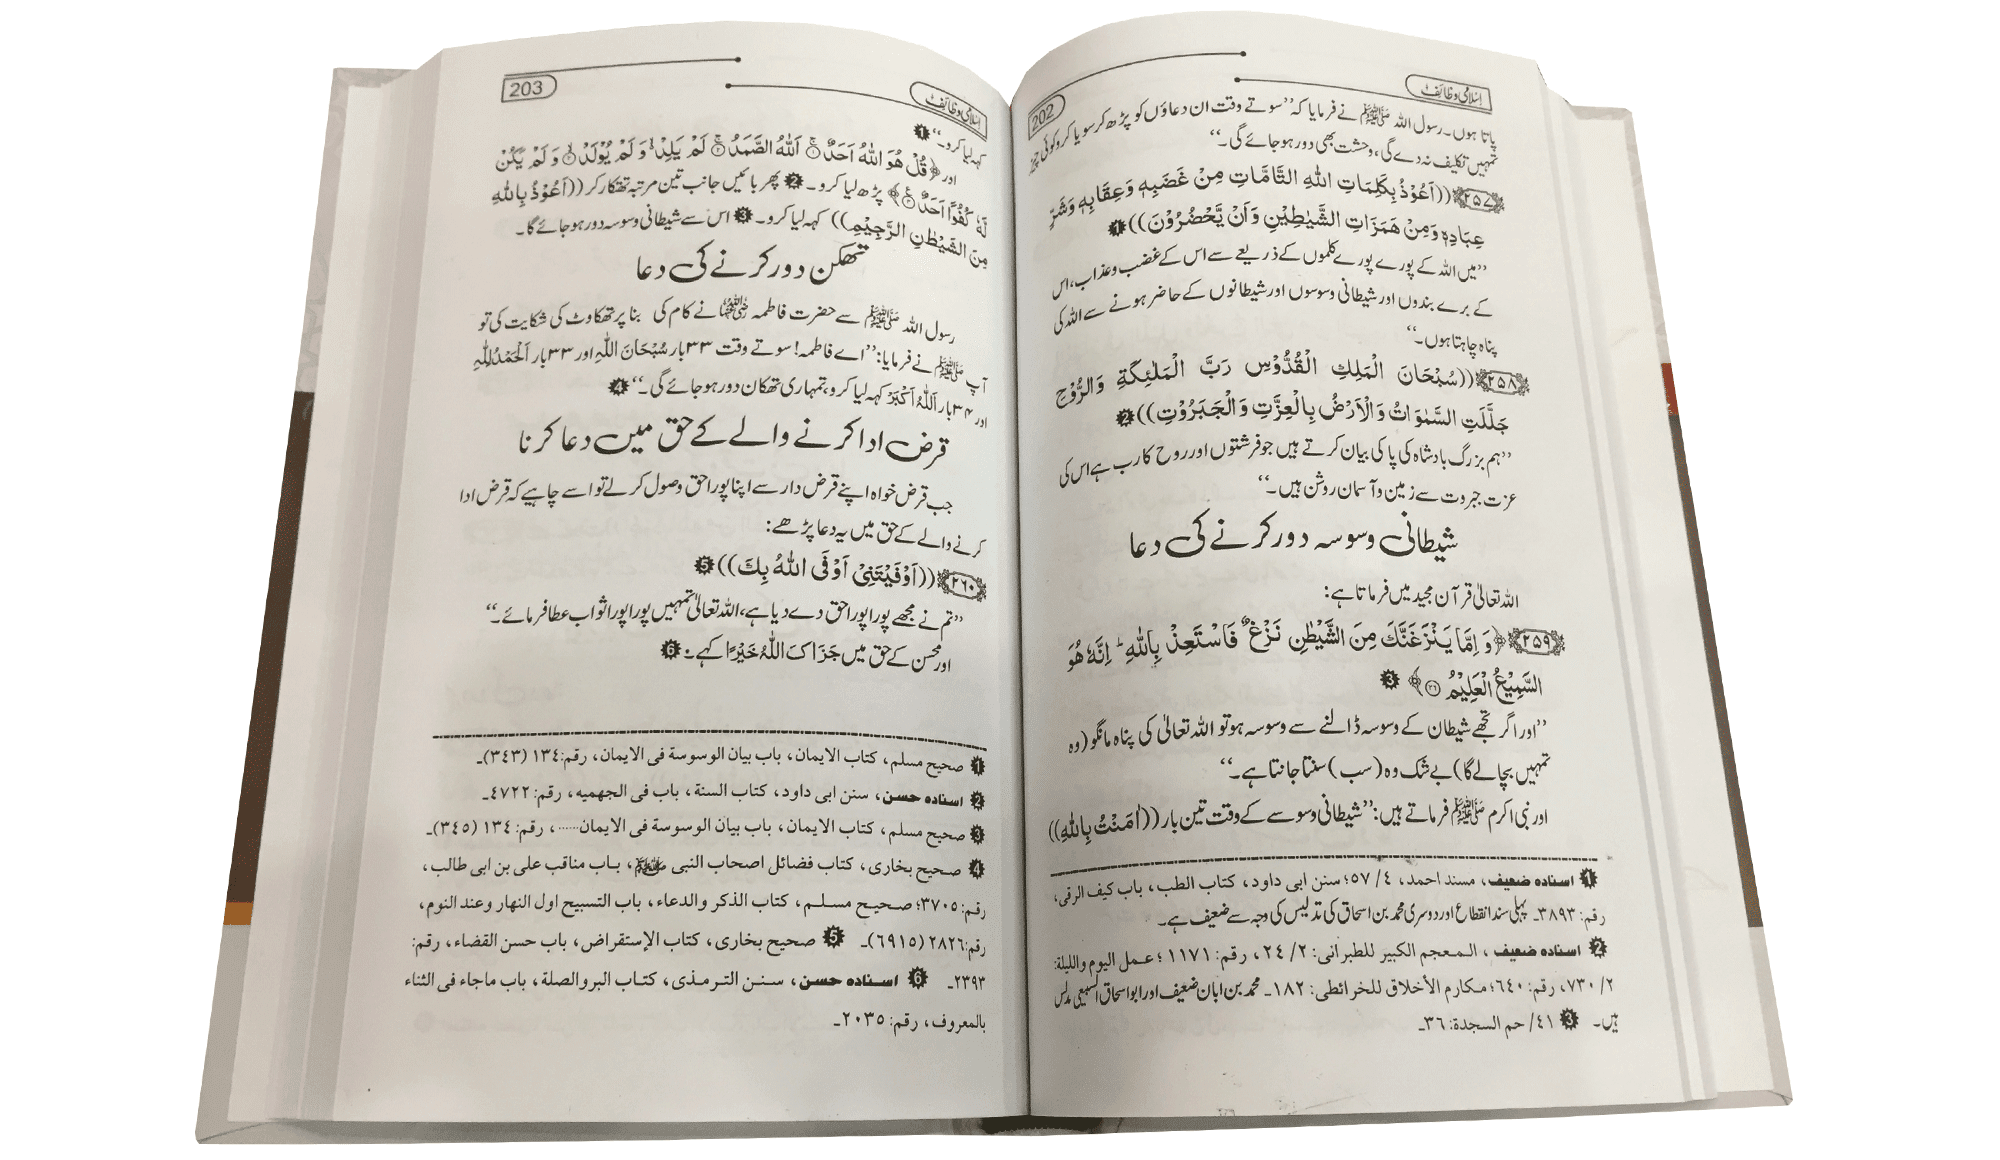 اسلامی وظائف
202
پاتا ہوں۔ رسول اللہ ﷺ نے فرمایا کہ ’’سوتے وقت ان دعاؤں کو پڑھ کر سویا کرو کوئی چیز
تمہیں تکلیف نہ دے گی، وحشت بھی دور ہو جائے گی۔‘‘
﴿۲۵۷﴾ ((اَعُوْذُ بِكَلِمَاتِ اللّٰهِ التَّامَّاتِ مِنْ غَضَبِهٖ وَعِقَابِهٖ وَشَرِّ
عِبَادِهٖ وَمِنْ هَمَزَاتِ الشَّيٰطِيْنِ وَاَنْ يَّحْضُرُوْنَ)) ❶
’’میں اللہ کے پورے پورے کلموں کے ذریعے سے اس کے غضب و عذاب، اس
کے برے بندوں اور شیطانی وسوسوں اور شیطانوں کے حاضر ہونے سے اللہ کی
پناہ چاہتا ہوں۔‘‘
﴿۲۵۸﴾ ((سُبْحَانَ الْمَلِكِ الْقُدُّوْسِ رَبِّ الْمَلٰئِكَةِ وَالرُّوْحِ
جَلَّلَتِ السَّمٰوَاتُ وَالْاَرْضُ بِالْعِزَّتِ وَالْجَبَرُوْتِ)) ❷
’’ہم بزرگ بادشاہ کی پاکی بیان کرتے ہیں جو فرشتوں اور روح کا رب ہے اس کی
عزت جبروت سے زمین و آسمان روشن ہیں۔‘‘
شیطانی وسوسہ دور کرنے کی دعا
اللہ تعالیٰ قرآن مجید میں فرماتا ہے:
﴿۲۵۹﴾ ﴿وَ اِمَّا يَنْزَغَنَّكَ مِنَ الشَّيْطٰنِ نَزْغٌ فَاسْتَعِذْ بِاللّٰهِ ؕ اِنَّهٗ هُوَ
السَّمِيْعُ الْعَلِيْمُ ۝۳۶﴾ ❸
’’اور اگر تجھے شیطان کے وسوسہ ڈالنے سے وسوسہ ہو تو اللہ تعالیٰ کی پناہ مانگو (وہ
تمہیں بچالے گا) بے شک وہ (سب) سنتا جانتا ہے۔‘‘
اور نبی اکرم ﷺ فرماتے ہیں: ’’شیطانی وسوسے کے وقت تین بار ((اٰمَنْتُ بِاللّٰهِ))
❶ اسناده ضعيف، مسند احمد، ٤/ ٥٧؛ سنن ابی داود، کتاب الطب، باب کیف الرقی،
رقم: ٣٨٩٣۔ پہلی سند انقطاع اور دوسری محمد بن اسحاق کی تدلیس کی وجہ سے ضعیف ہے۔
❷ اسناده ضعيف، المعجم الكبير للطبرانی: ٢/ ٢٤، رقم: ١١٧١؛ عمل اليوم والليلة:
٢/ ٧٣٠، رقم: ٦٤٠؛ مكارم الأخلاق للخرائطی: ١٨٢۔ محمد بن ابان ضعیف اور ابو اسحاق السبیعی مدلس
ہیں۔ ❸ ٤١/ حم السجدة: ٣٦۔
اسلامی وظائف
203
کہہ لیا کرو۔‘‘ ❶
اور ﴿قُلْ هُوَ اللّٰهُ اَحَدٌ ۝۱ اَللّٰهُ الصَّمَدُ ۝۲ لَمْ يَلِدْ ۙ وَ لَمْ يُوْلَدْ ۝۳ وَ لَمْ يَكُنْ
لَّهٗ كُفُوًا اَحَدٌ ۝۴﴾ پڑھ لیا کرو۔ ❷ پھر بائیں جانب تین مرتبہ تھتکار کر ((اَعُوْذُ بِاللّٰهِ
مِنَ الشَّيْطٰنِ الرَّجِيْمِ)) کہہ لیا کرو۔ ❸ اس سے شیطانی وسوسہ دور ہو جائے گا۔
تھکن دور کرنے کی دعا
رسول اللہ ﷺ سے حضرت فاطمہ رضی اللہ عنہا نے کام کی بنا پر تھکاوٹ کی شکایت کی تو
آپ ﷺ نے فرمایا: ’’اے فاطمہ! سوتے وقت ۳۳ بار سُبْحَانَ اللّٰهِ اور ۳۳ بار اَلْحَمْدُلِلّٰهِ
اور ۳۴ بار اَللّٰهُ اَكْبَرُ کہہ لیا کرو، تمہاری تھکان دور ہو جائے گی۔‘‘ ❹
قرض ادا کرنے والے کے حق میں دعا کرنا
جب قرض خواہ اپنے قرض دار سے اپنا پورا حق وصول کر لے تو اسے چاہیے کہ قرض ادا
کرنے والے کے حق میں یہ دعا پڑھے:
﴿۲۶۰﴾ ((اَوْفَيْتَنِىْ اَوْفَى اللّٰهُ بِكَ)) ❺
’’تم نے مجھے پورا پورا حق دے دیا ہے، اللہ تعالیٰ تمہیں پورا پورا ثواب عطا فرمائے۔‘‘
اور محسن کے حق میں جَزَاكَ اللّٰهُ خَيْرًا کہے۔ ❻
❶ صحيح مسلم، كتاب الايمان، باب بيان الوسوسة فی الايمان، رقم: ١٣٤ (٣٤٣)۔
❷ اسناده حسن، سنن ابی داود، كتاب السنة، باب فی الجهمیه، رقم: ٤٧٢٢۔
❸ صحيح مسلم، كتاب الايمان، باب بيان الوسوسة فی الايمان......، رقم: ١٣٤ (٣٤٥)۔
❹ صحيح بخاری، كتاب فضائل اصحاب النبی ﷺ، باب مناقب علی بن ابی طالب،
رقم: ٣٧٠٥؛ صحيح مسلم، كتاب الذكر والدعاء، باب التسبيح اول النهار وعند النوم،
رقم: ٢٨٢٦ (٦٩١٥)۔ ❺ صحيح بخاری، كتاب الإستقراض، باب حسن القضاء، رقم:
٢٣٩٣۔ ❻ اسناده حسن، سنن الترمذی، كتاب البر والصلة، باب ماجاء فی الثناء
بالمعروف، رقم: ٢٠٣٥۔